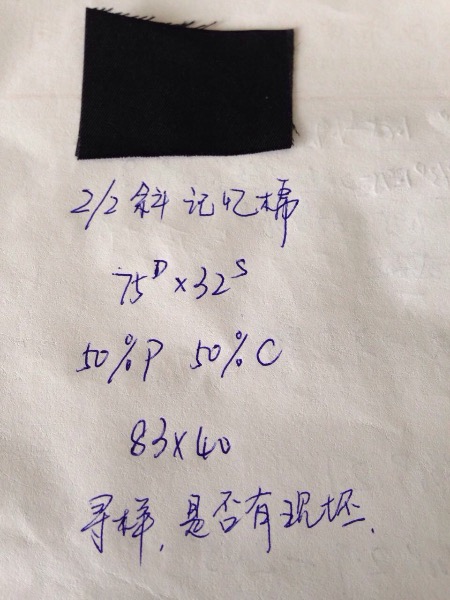 2/2斜记忆棉
75D×32S
50%P 50%C
83×40
寻样,是否有现坯.